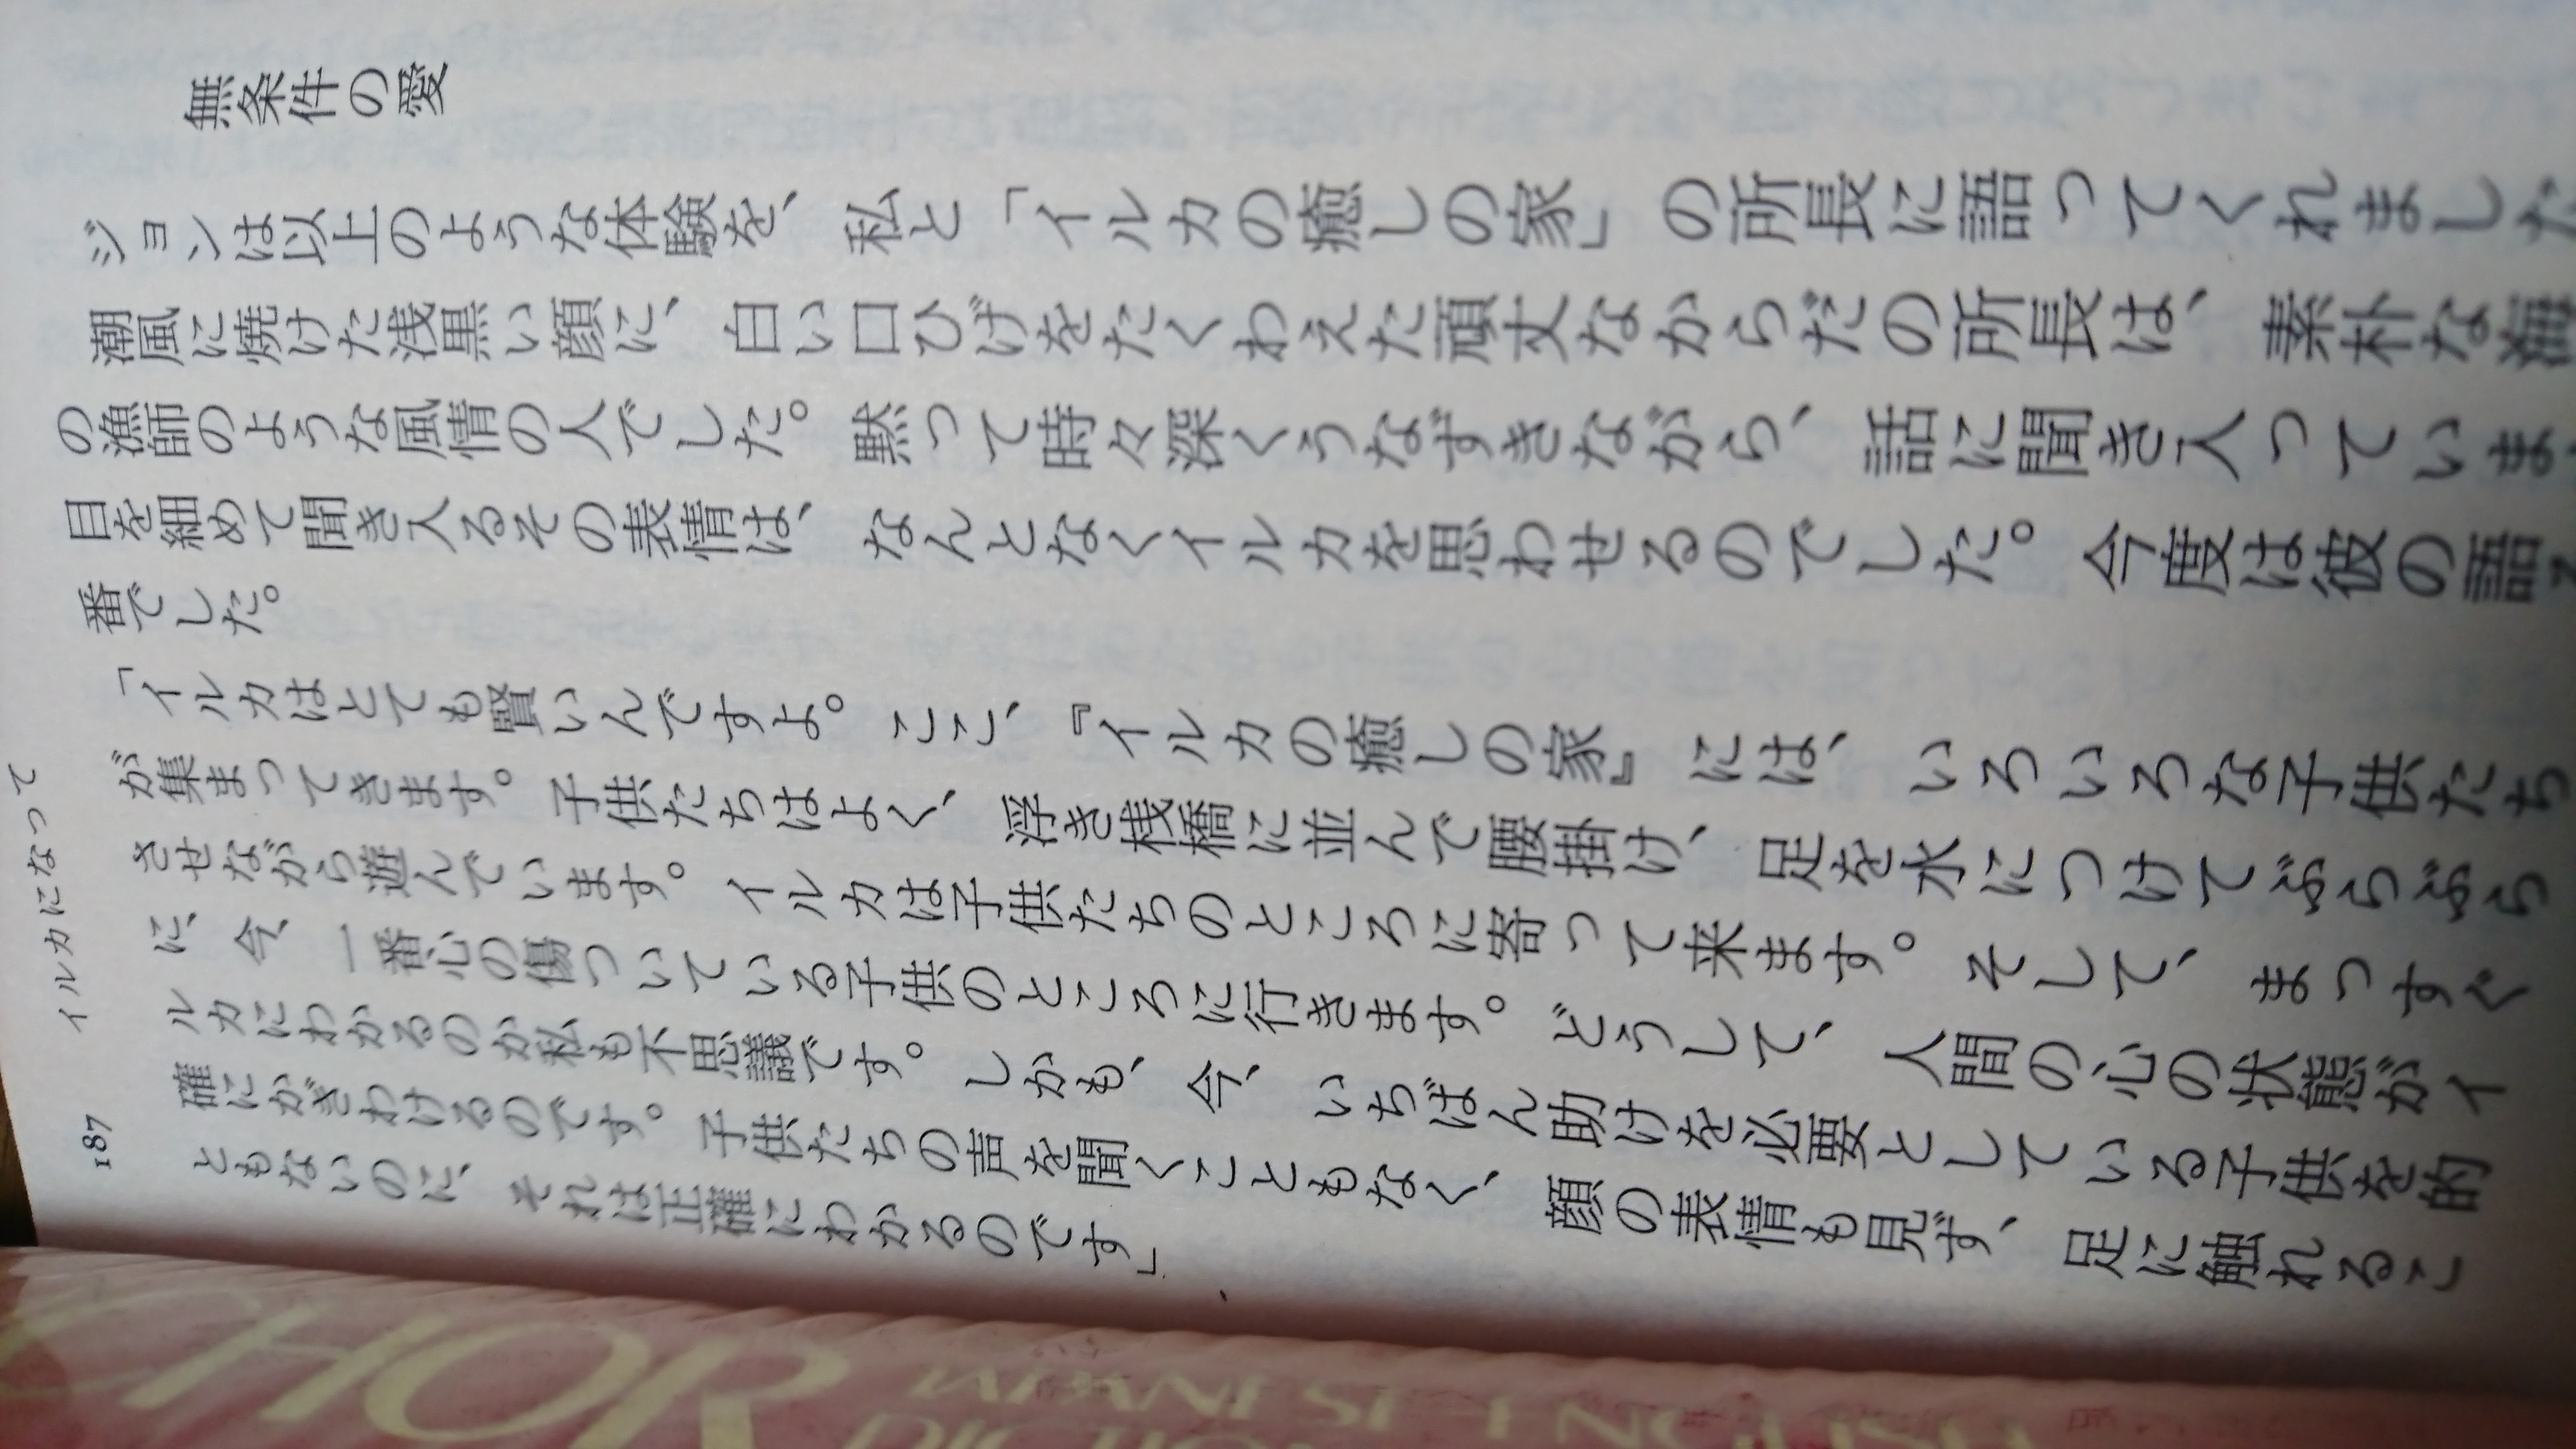 無条件の愛
ジョンは以上のような体験を、私と「イルカの癒しの家」の所長に語ってくれました
潮風に焼けた浅黒い顔に、白い口ひげをたくわえた頑丈なからだの所長は、素朴な海
の漁師のような風情の人でした。黙って時々深くうなずきながら、話に聞き入っていま
目を細めて聞き入るその表情は、なんとなくイルカを思わせるのでした。今度は彼の語る
番でした。
「イルカはとても賢いんですよ。ここ、『イルカの癒しの家』には、いろいろな子供たち
が集まってきます。子供たちはよく、浮き桟橋に並んで腰掛け、足を水につけてぶらぶら
させながら遊んでいます。イルカは子供たちのところに寄って来ます。そして、まっすぐ
に、今、一番心の傷ついている子供のところに行きます。どうして、人間の心の状態がイ
ルカにわかるのか私も不思議です。しかも、今、いちばん助けを必要としている子供を的
確にかぎわけるのです。子供たちの声を聞くこともなく、顔の表情も見ず、足に触れるこ
ともないのに、それは正確にわかるのです」
187 イルカになって
CHOR
JAPANESE-ENGLISH